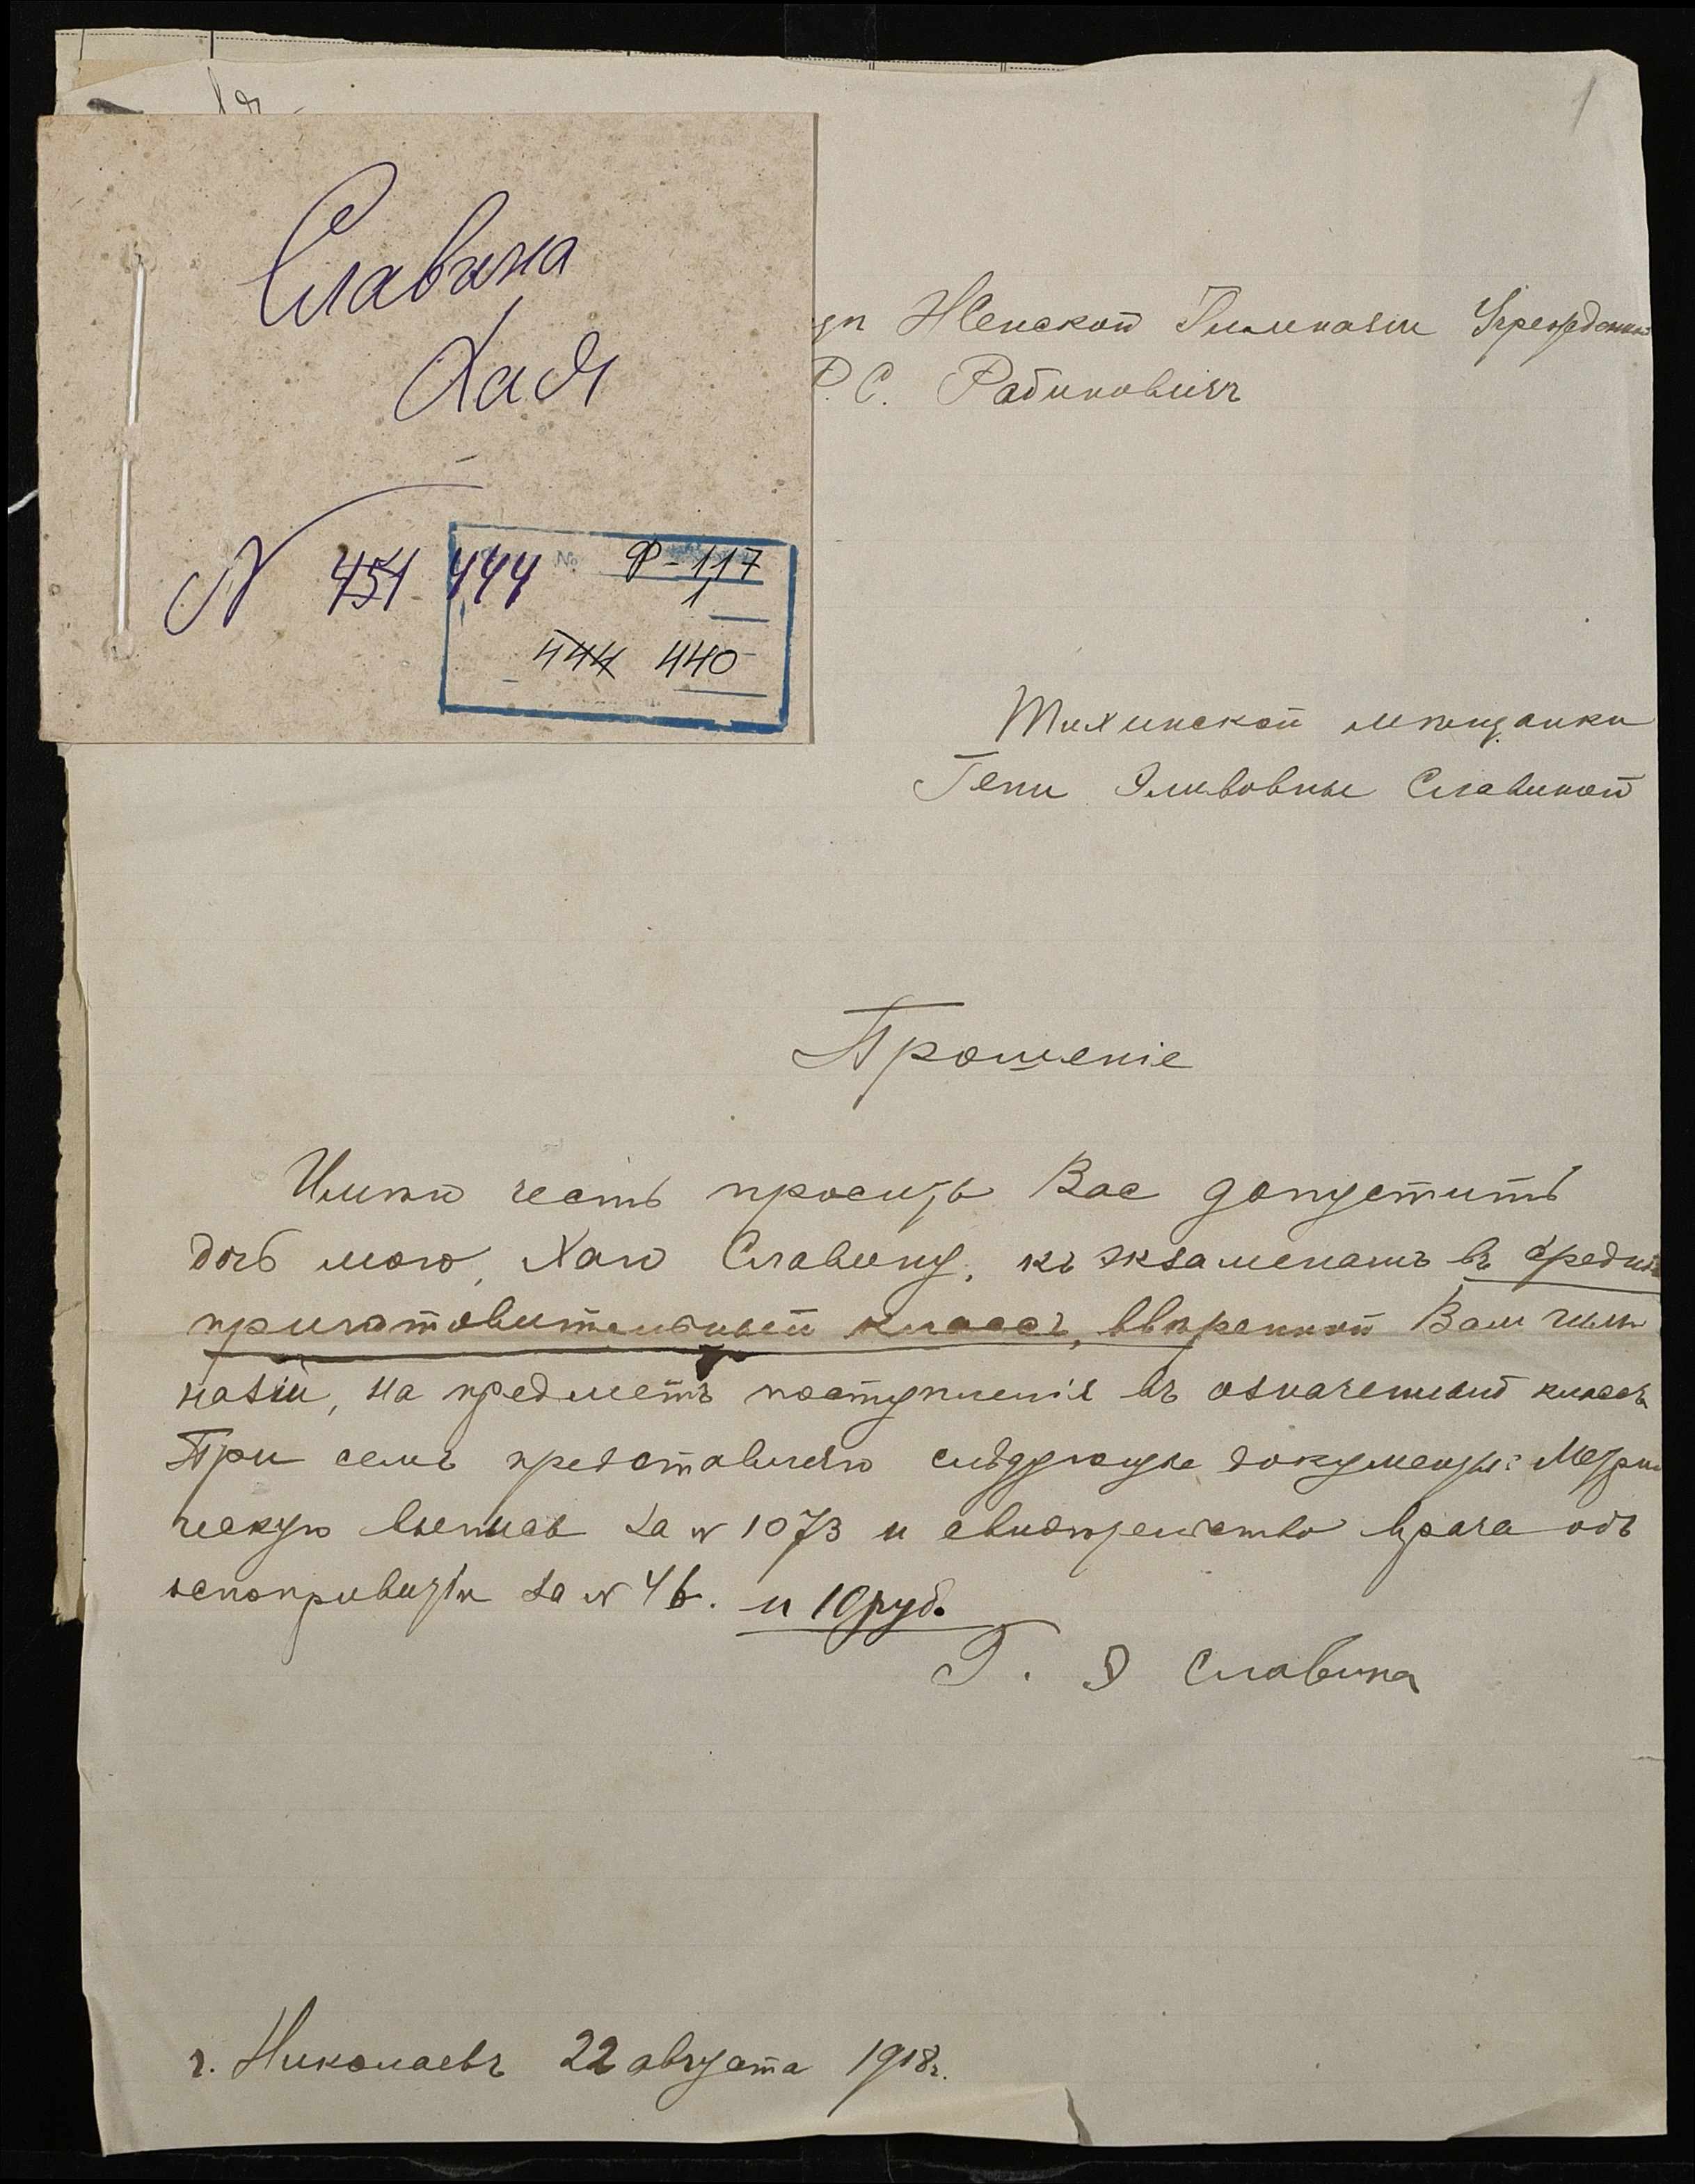 1
Славина
Хая
N 451 444
№ Ф-117
1
444 440
Женской Гимназіи Учрежденной
Р. С. Рабиновичъ
мѣщанки
Гени Славиной
Прошеніе
Имѣю честь просить Вас допустить
дочь мою, Хаю Славину, къ экзаменамъ въ средній
приготовительный классъ, ввѣренной Вам гим-
назіи, на предметъ поступленія въ означенный классъ
При семъ представляю слѣдующіе документы: Метри-
ческую выпись за № 1073 и свидѣтельство врача объ
оспопрививтіи за № 46. и 10 руб.
Г. Э Славина
г. Николаевъ 22 августа 1918 г.